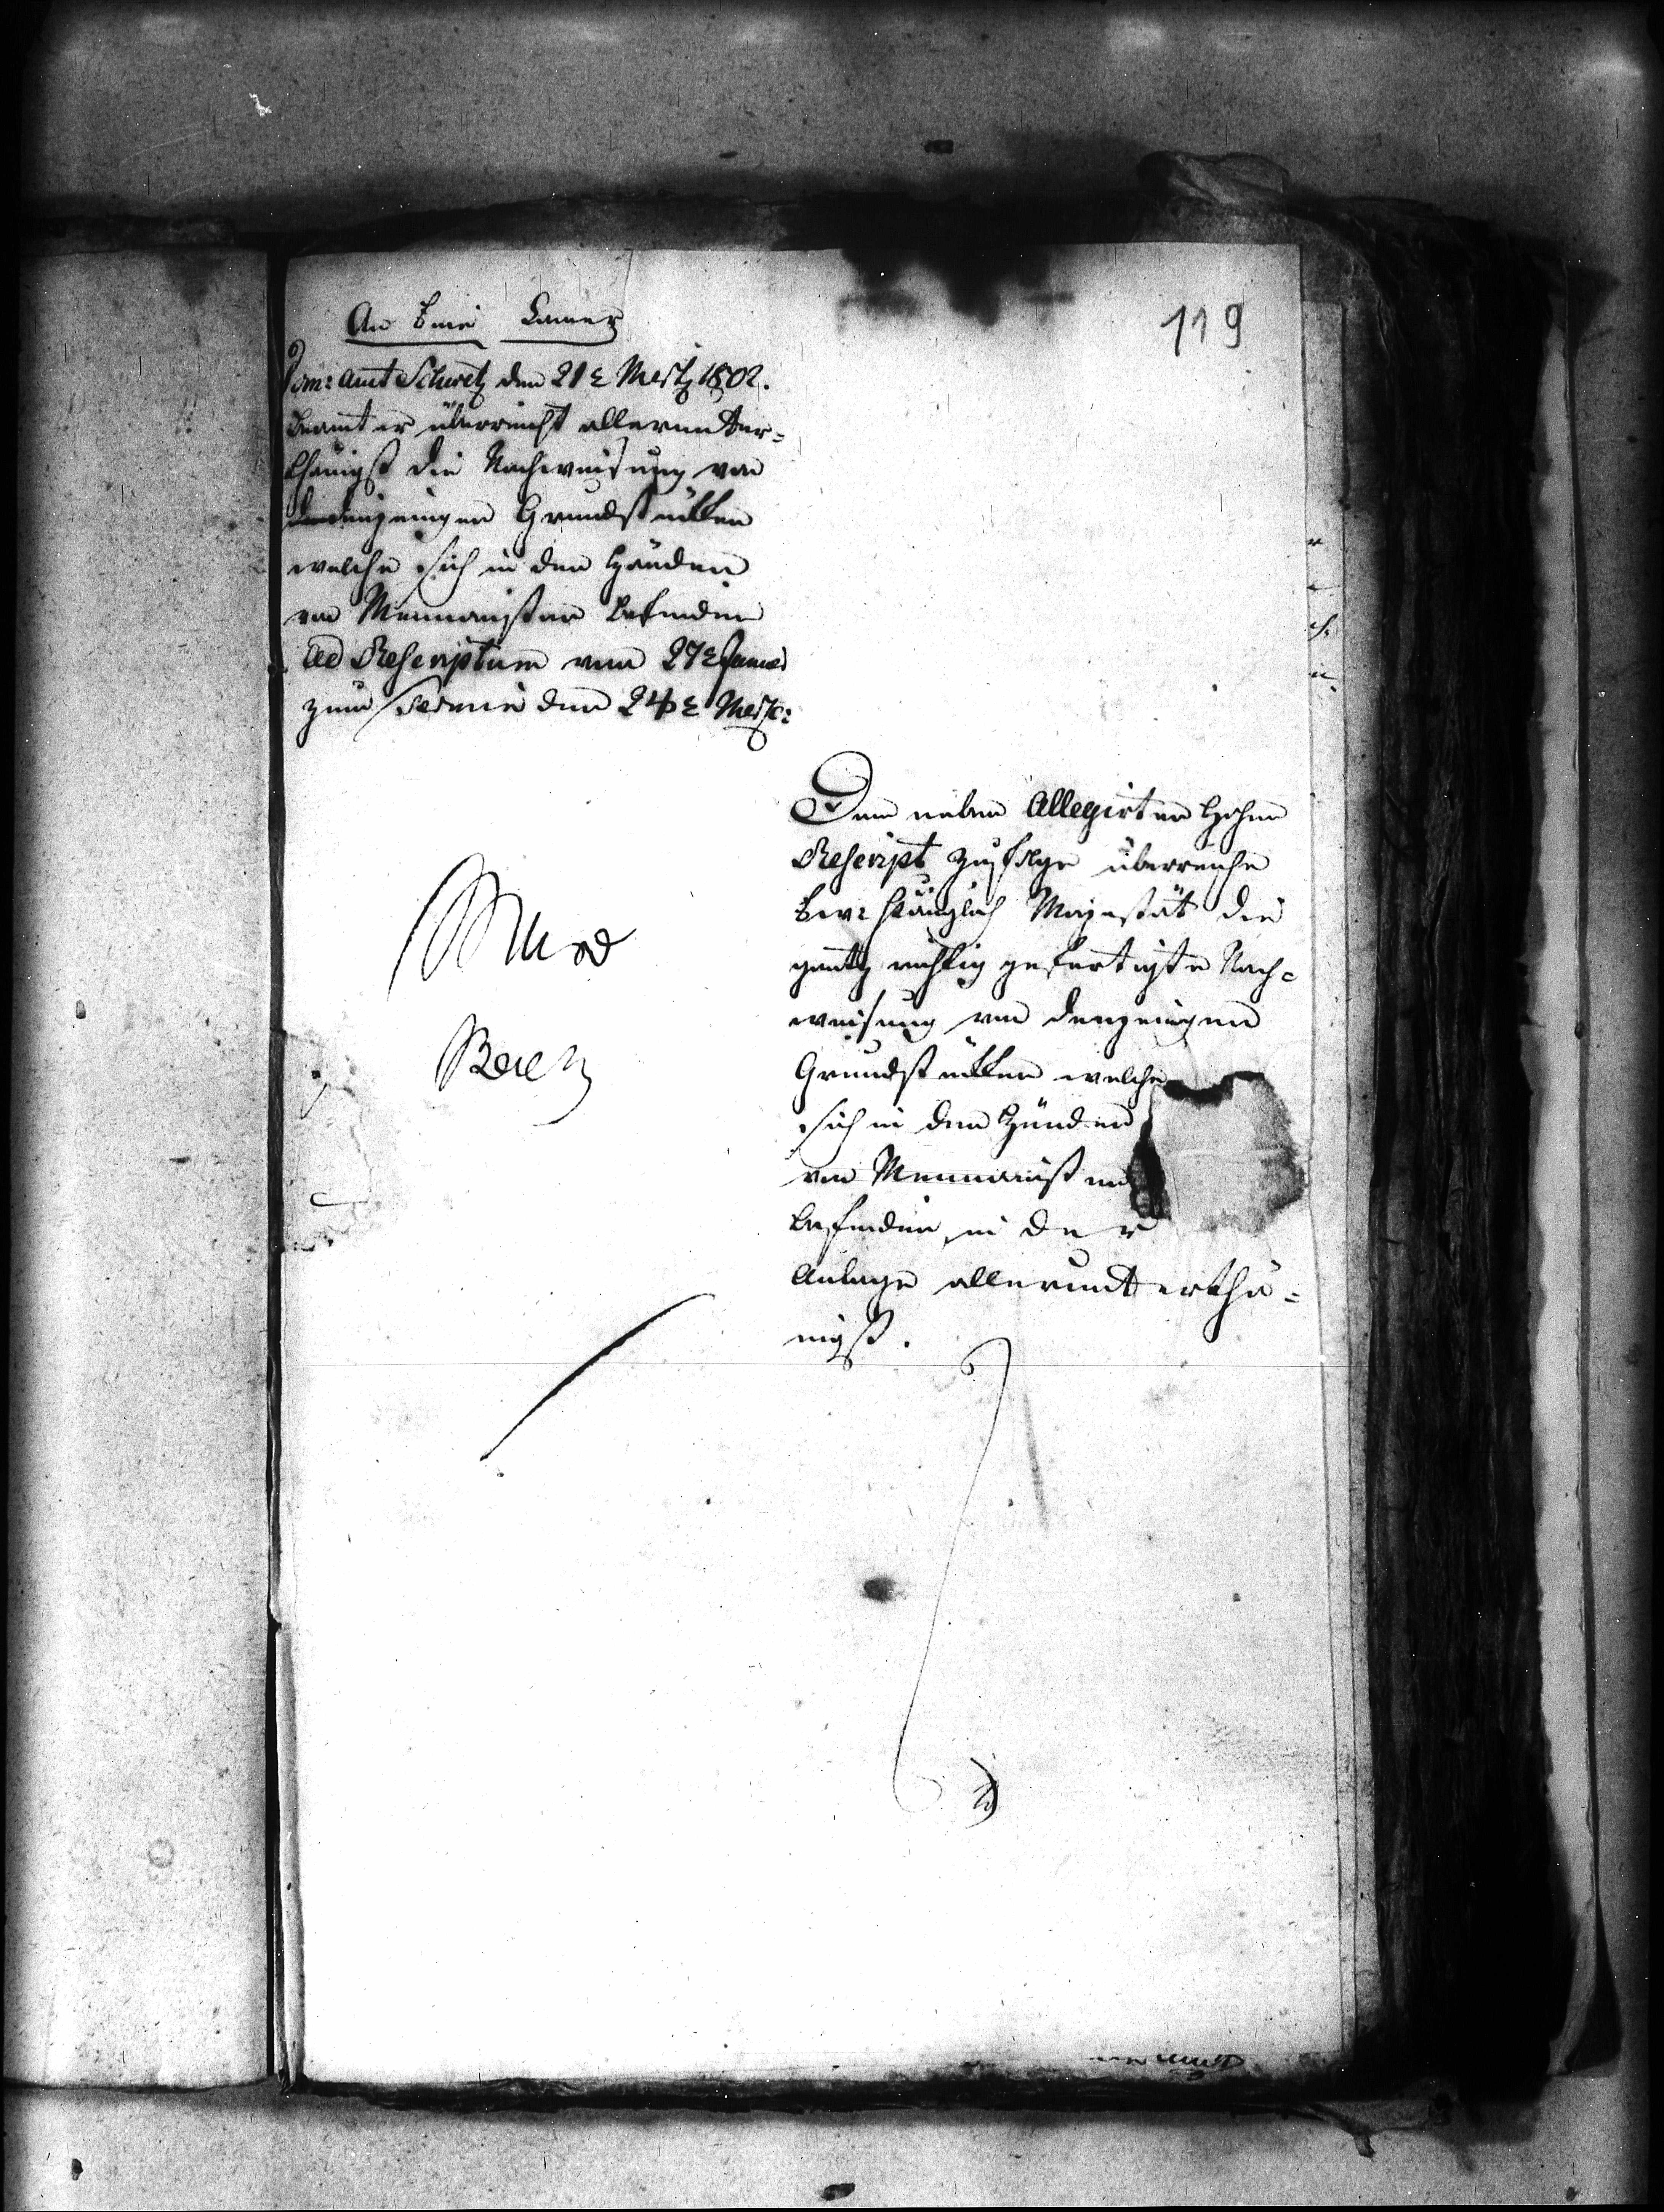 119
An Eine Camer
Dom: Amt Schwetz den 21t Mertz 1802.
Beamter überreicht allerunter=
thänigst die Nachweisung von
denjenigen Grundstükken
welche sich in den Händen
von Mennonisten befinden
Ad Rescriptum vom 27t
zum Termin den 24t Mertz:
Dem neben Allegirten Hohen
Rescript zufolge überreiche
Ewr Königlich Majestät die
gantz richtig gefertigte Nach=
weisung von denjenigen
Grundstükken welche
sich in den Händen
von Mennonisten
befinden, in der
Anlage allerunterthä=
nigst.